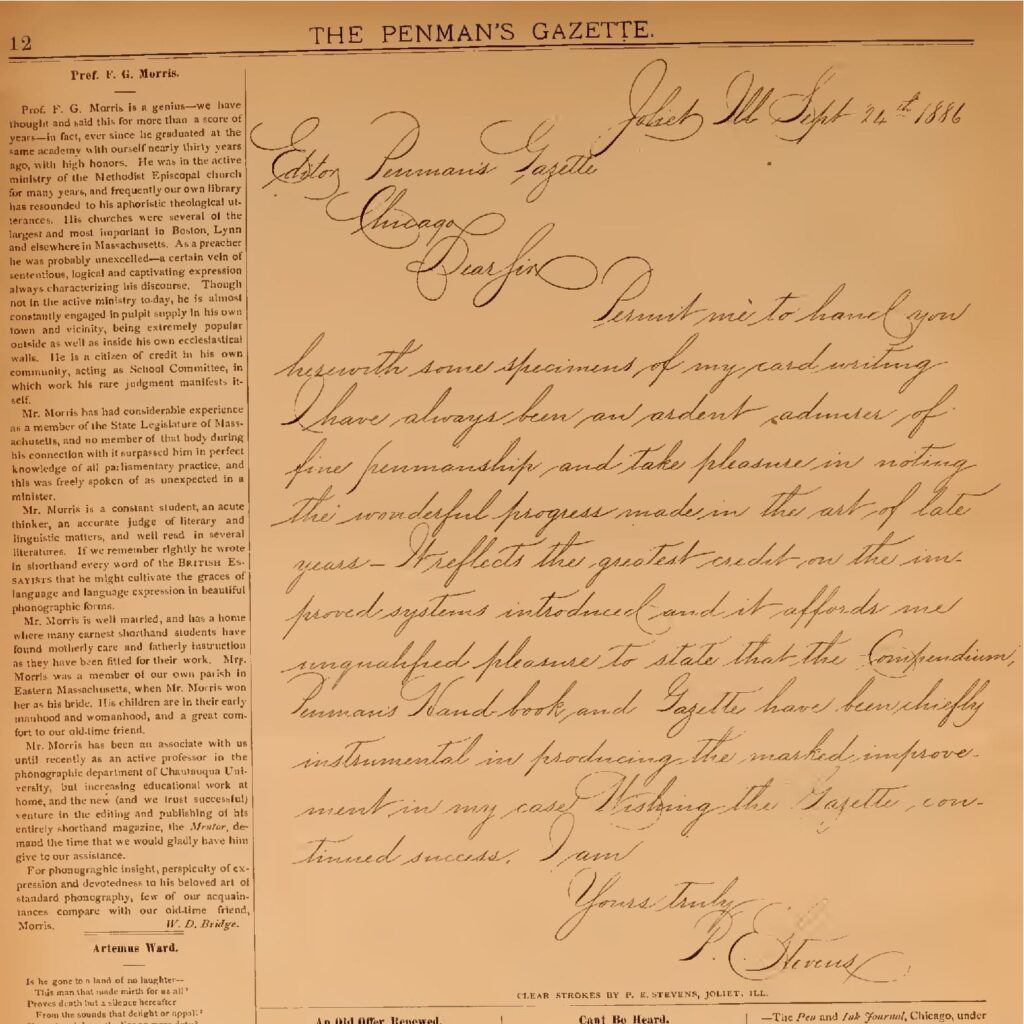 12
THE PENMAN'S GAZETTE.
Prof. F. G. Morris.
Prof. F. G. Morris is a genius—we have
thought and said this for more than a score of
years—in fact, ever since he graduated at the
same academy with ourself nearly thirty years
ago, with high honors. He was in the active
ministry of the Methodist Episcopal church
for many years, and frequently our own library
has resounded to his aphoristic theological ut-
terances. His churches were several of the
largest and most important in Boston, Lynn
and elsewhere in Massachusetts. As a preacher
he was probably unexcelled—a certain vein of
sententious, logical and captivating expression
always characterizing his discourse. Though
not in the active ministry to-day, he is almost
constantly engaged in pulpit supply in his own
town and vicinity, being extremely popular
outside as well as inside his own ecclesiastical
walls. He is a citizen of credit in his own
community, acting as School Committee, in
which work his rare judgment manifests it-
self.
Mr. Morris has had considerable experience
as a member of the State Legislature of Mass-
achusetts, and no member of that body during
his connection with it surpassed him in perfect
knowledge of all parliamentary practice, and
this was freely spoken of as unexpected in a
minister.
Mr. Morris is a constant student, an acute
thinker, an accurate judge of literary and
linguistic matters, and well read in several
literatures. If we remember rightly he wrote
in shorthand every word of the BRITISH ES-
SAYISTS that he might cultivate the graces of
language and language expression in beautiful
phonographic forms.
Mr. Morris is well married, and has a home
where many earnest shorthand students have
found motherly care and fatherly instruction
as they have been fitted for their work. Mrs.
Morris was a member of our own parish in
Eastern Massachusetts, when Mr. Morris won
her as his bride. His children are in their early
manhood and womanhood, and a great com-
fort to our old-time friend.
Mr. Morris has been an associate with us
until recently as an active professor in the
phonographic department of Chautauqua Uni-
versity, but increasing educational work at
home, and the new (and we trust successful)
venture in the editing and publishing of his
entirely shorthand magazine, the Mentor, de-
mand the time that we would gladly have him
give to our assistance.
For phonograghic insight, perspicuity of ex-
pression and devotedness to his beloved art of
standard phonography, few of our acquain-
tances compare with our old-time friend,
Morris. W. D. Bridge.
Artemus Ward.
Is he gone to a land of no laughter—
This man that made mirth for us all?
Proves death but a silence hereafter
From the sounds that delight or appal?
Joliet Ill Sept 24th 1886
Editor Penman's Gazette
Chicago
Dear Sir
Permit me to hand you
herewith some specimens of my card writing
I have always been an ardent admirer of
fine penmanship and take pleasure in noting
the wonderful progress made in the art of late
years – It reflects the greatest credit on the im-
proved systems introduced and it affords me
unqualified pleasure to state that the Compendium,
Penman's Hand-book and Gazette have been chiefly
instrumental in producing the marked improve-
ment in my case Wishing the Gazette con-
tinued success. I am
Yours truly
P. E. Stevens
CLEAR STROKES BY P. E. STEVENS, JOLIET, ILL.
An Old Offer Renewed.
Cant Be Heard.
—The Pen and Ink Journal, Chicago, under